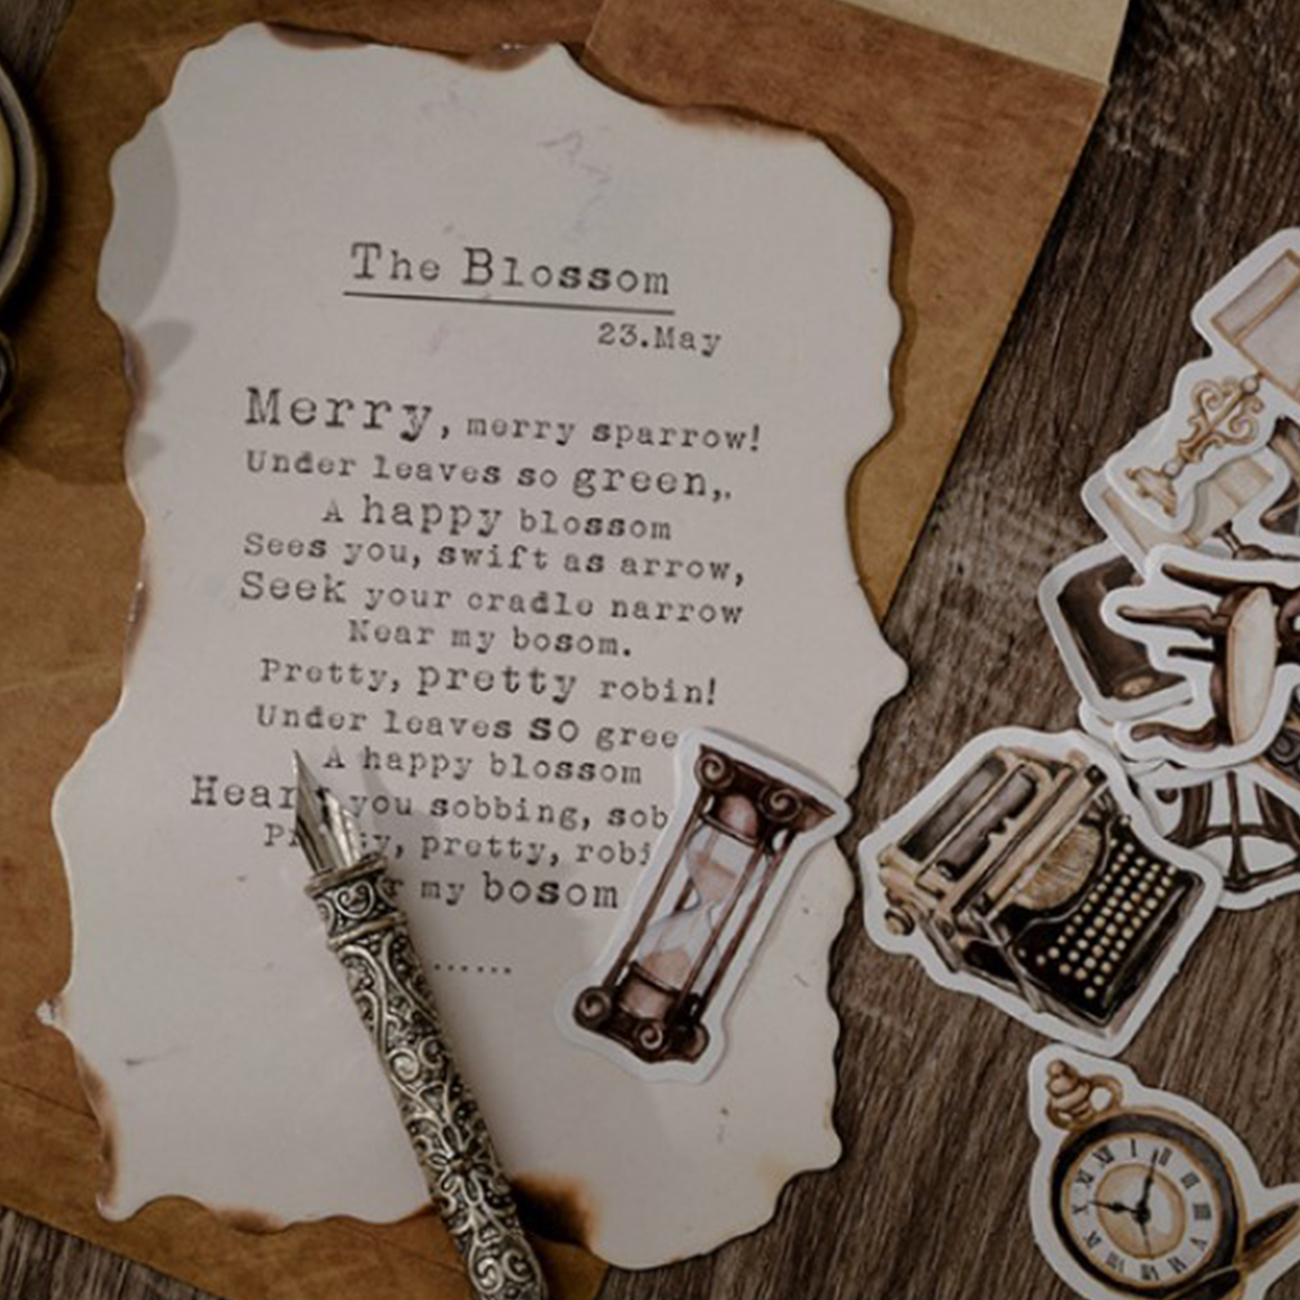 The Blossom
23.May
Merry, merry sparrow!
Under leaves so green,.
A happy blossom
Sees you, swift as arrow,
Seek your cradle narrow
Near my bosom.
Pretty, pretty robin!
Under leaves SO gree
A happy blossom
Hear you sobbing, sob
pretty, robi
my bosom
......